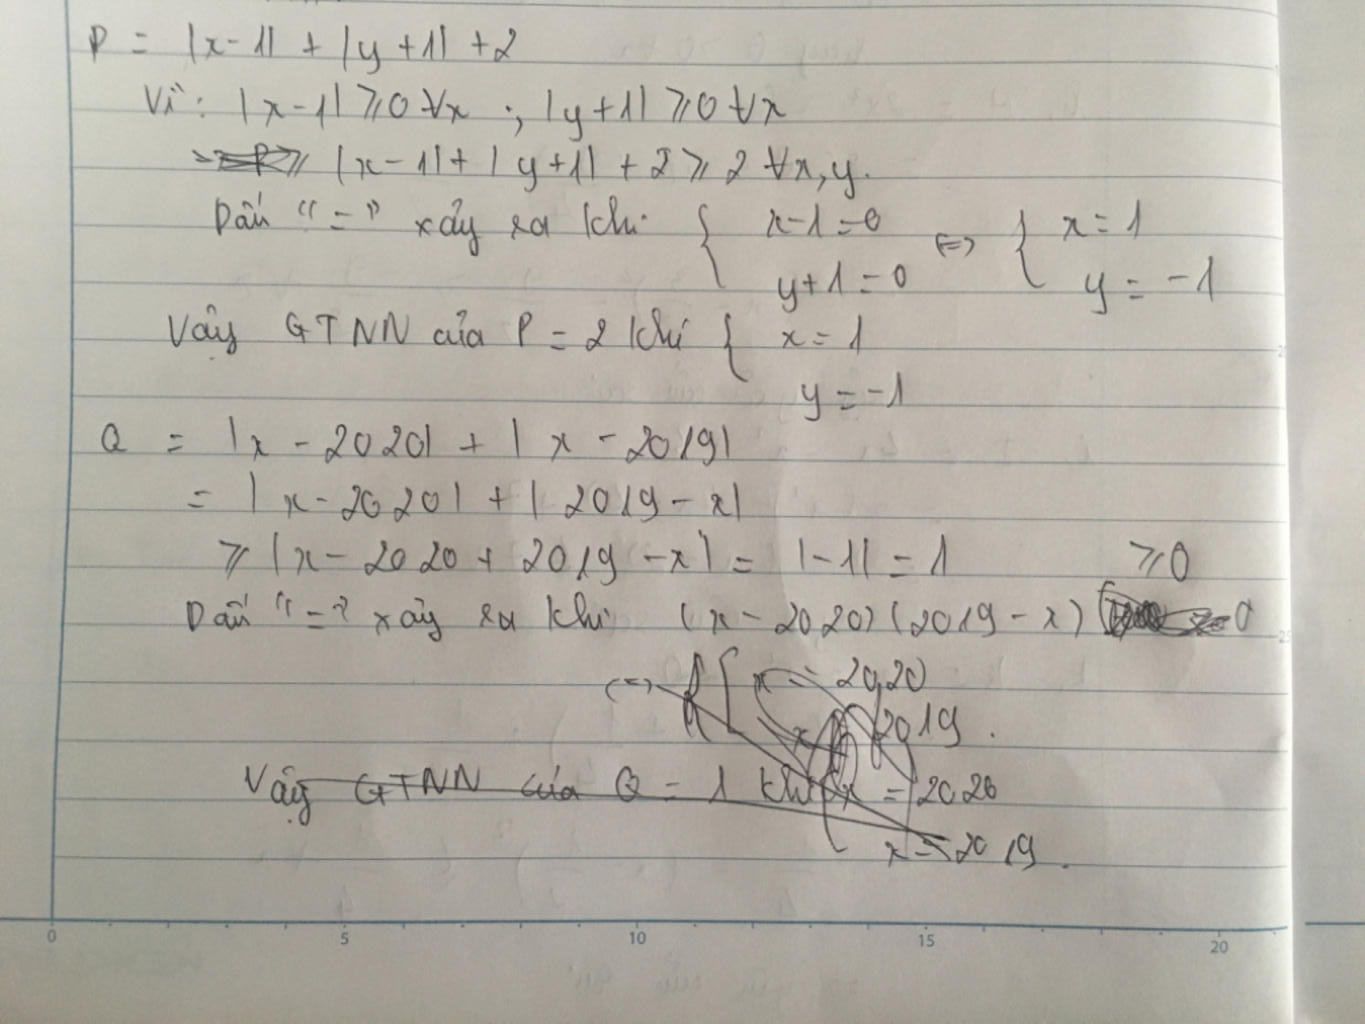 P = |x-1| + |y+1| + 2
Vì: |x-1| ⩾ 0 ∀x ; |y+1| ⩾ 0 ∀x
|x-1| + |y+1| + 2 ⩾ 2 ∀x,y.
Dấu "=" xảy ra khi { x-1=0 <=> { x=1
y+1=0 y=-1
Vậy GTNN của P = 2 khi { x=1
y=-1
Q = |x-2020| + |x-2019|
= |x-2020| + |2019-x|
⩾ |x-2020+2019-x| = |-1| = 1 ⩾0
Dấu "=" xảy ra khi (x-2020)(2019-x) 0
<=> [ x = 2020
x 2019.
Vậy GTNN của Q = 1 khi x = 2020
x = 2019.
0 5 10 15 20